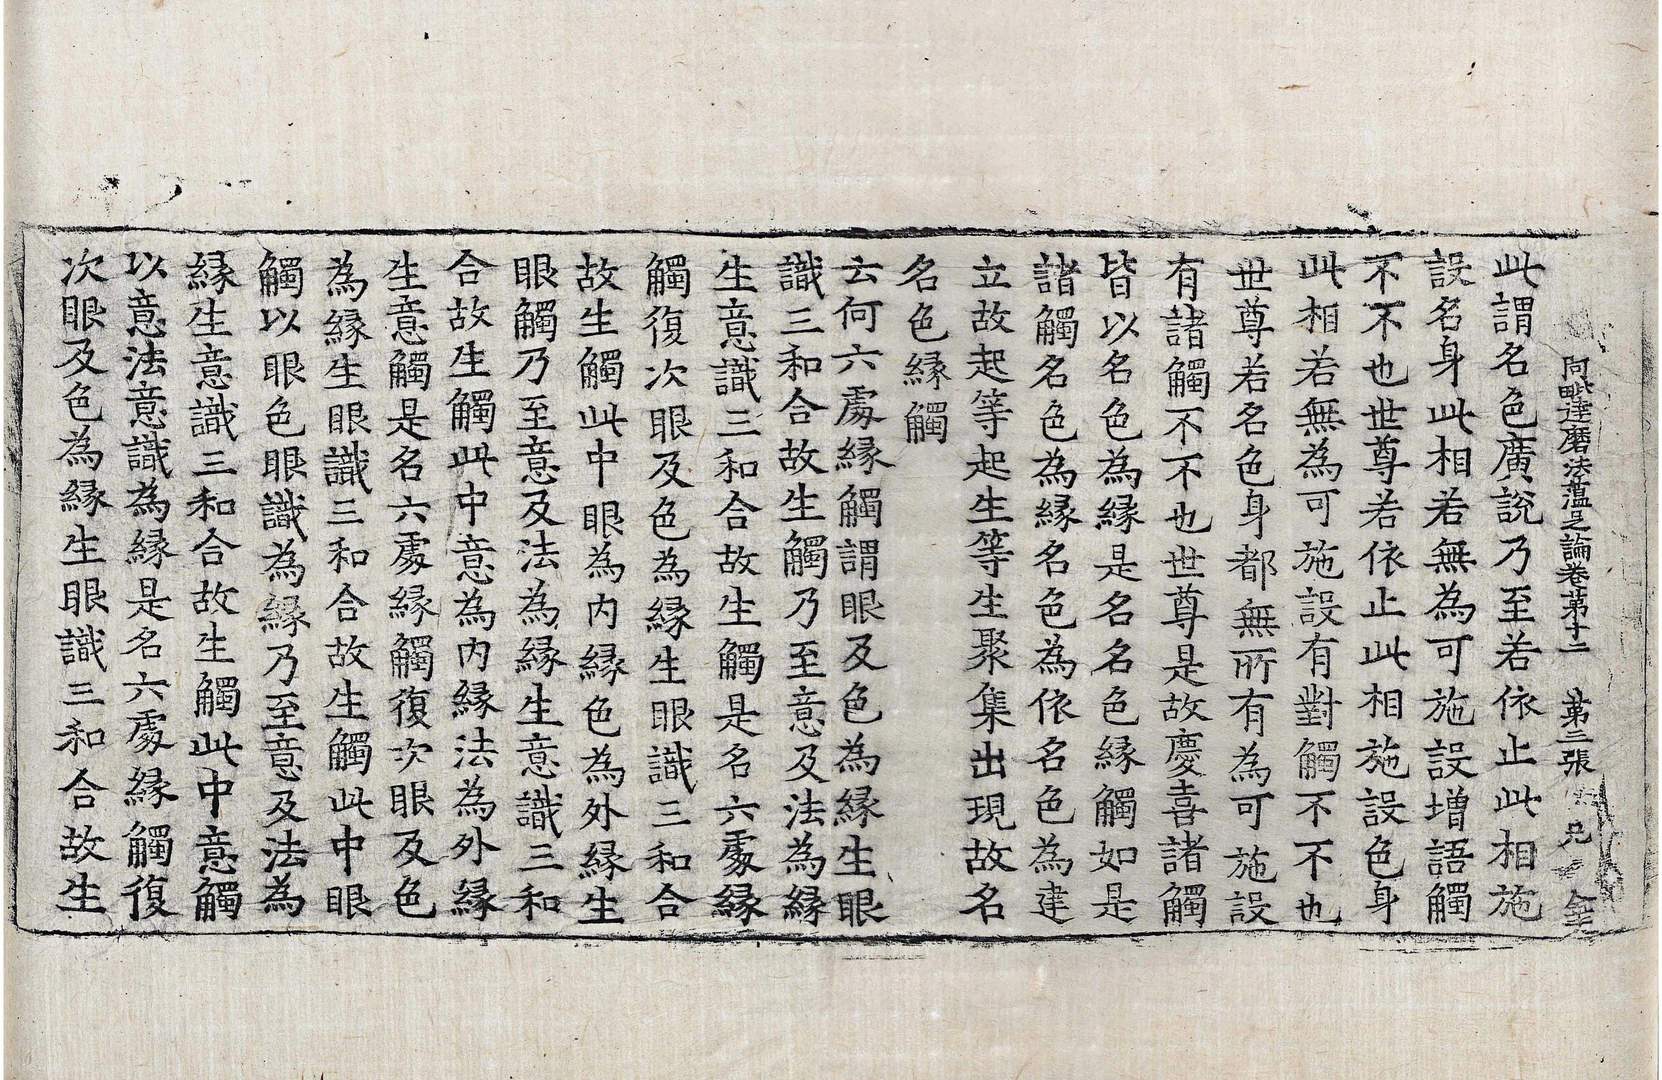 阿毗達磨法蘊足論卷第十二 第三張 兄
此謂名色廣說乃至若依止此相施
設名身此相若無為可施設增語觸
不不也世尊若依止此相施設色身
此相若無為可施設有對觸不不也
世尊若名色身都無所有為可施設
有諸觸不不也世尊是故慶喜諸觸
皆以名色為緣是名名色緣觸如是
諸觸名色為緣名色為依名色為建
立故起等起生等生聚集出現故名
名色緣觸
云何六處緣觸謂眼及色為緣生眼
識三和合故生觸乃至意及法為緣
生意識三和合故生觸是名六處緣
觸復次眼及色為緣生眼識三和合
故生觸此中眼為內緣色為外緣生
眼觸乃至意及法為緣生意識三和
合故生觸此中意為內緣法為外緣
生意觸是名六處緣觸復次眼及色
為緣生眼識三和合故生觸此中眼
觸以眼色眼識為緣乃至意及法為
緣生意識三和合故生觸此中意觸
以意法意識為緣是名六處緣觸復
次眼及色為緣生眼識三和合故生